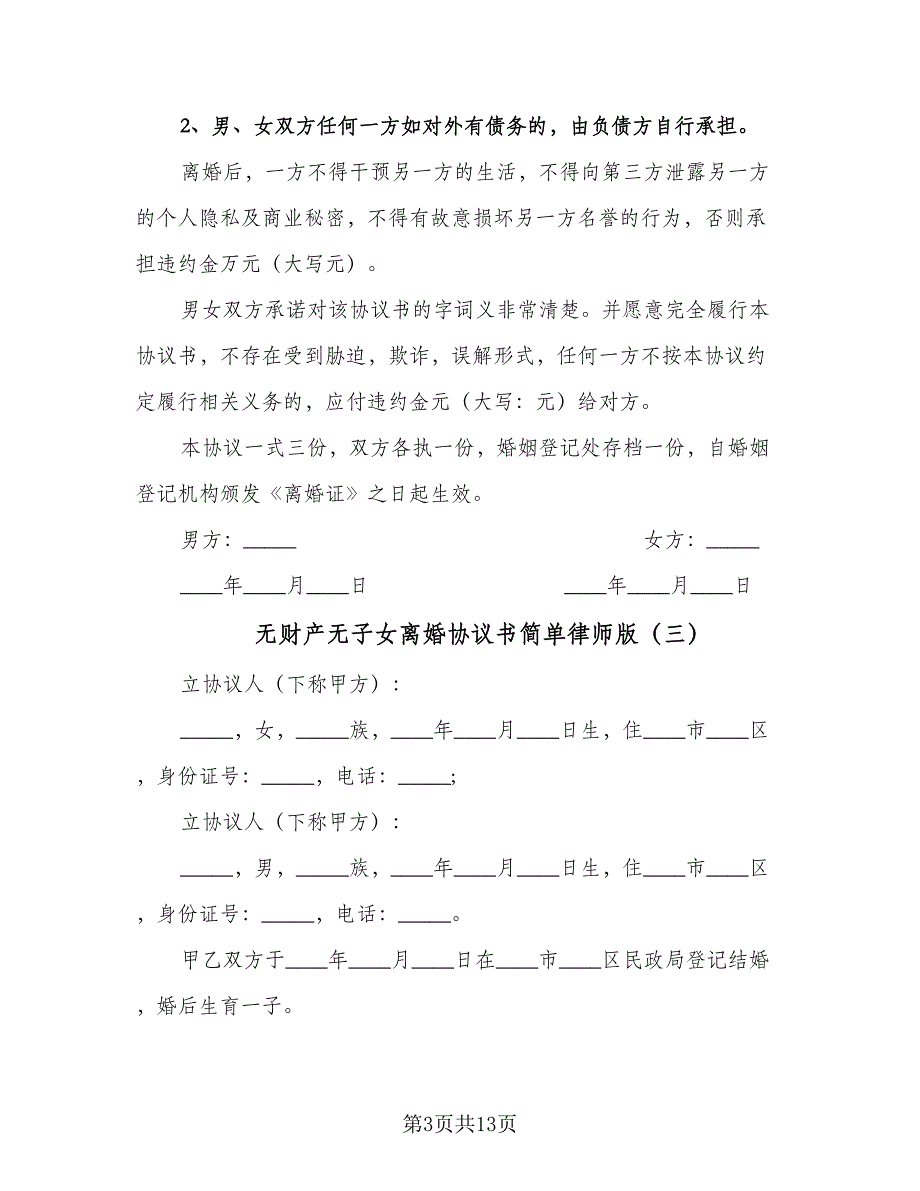 2、男、女双方任何一方如对外有债务的，由负债方自行承担。
离婚后，一方不得干预另一方的生活，不得向第三方泄露另一方
的个人隐私及商业秘密，不得有故意损坏另一方名誉的行为，否则承
担违约金万元（大写元）。
男女双方承诺对该协议书的字词义非常清楚。并愿意完全履行本
协议书，不存在受到胁迫，欺诈，误解形式，任何一方不按本协议约
定履行相关义务的，应付违约金元（大写：元）给对方。
本协议一式三份，双方各执一份，婚姻登记处存档一份，自婚姻
登记机构颁发《离婚证》之日起生效。
男方：_____ 女方：_____
____年____月____日 ____年____月____日
无财产无子女离婚协议书简单律师版（三）
立协议人（下称甲方）：
_____，女，_____族，____年____月____日生，住____市____区
，身份证号：_____，电话：_____;
立协议人（下称甲方）：
_____，男，_____族，____年____月____日生，住____市____区
，身份证号：_____，电话：_____。
甲乙双方于____年____月____日在____市____区民政局登记结婚
，婚后生育一子。
第3页共13页